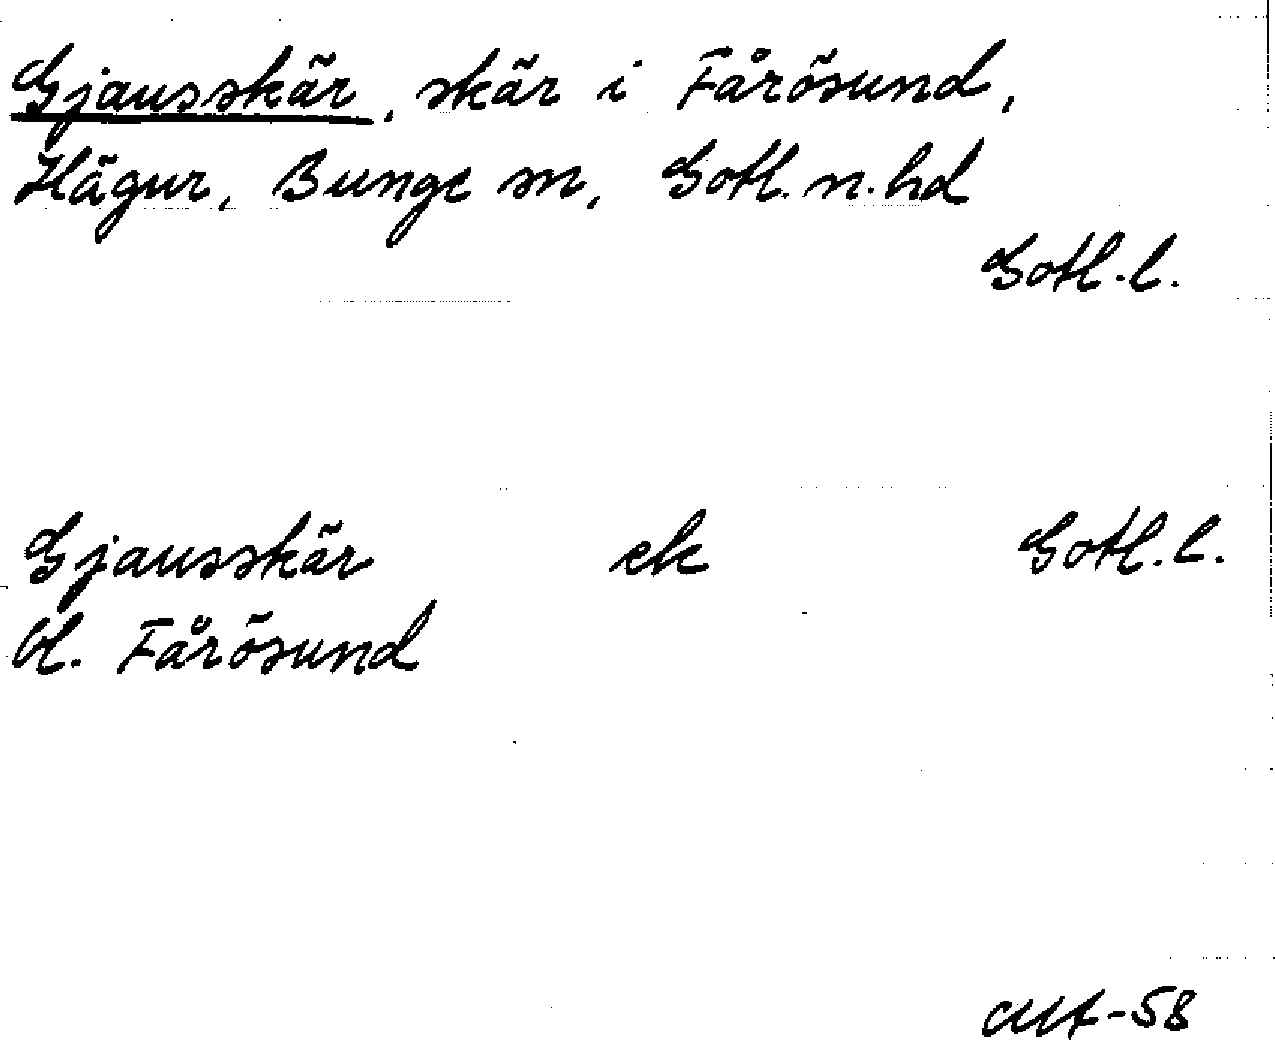 Gjausskär, skär i Fårösund,
Hägur, Bunge sn, Gotl. n. hd
Gotl. l.
Gjausskär ek Gotl. l.
bl. Fårösund
-58